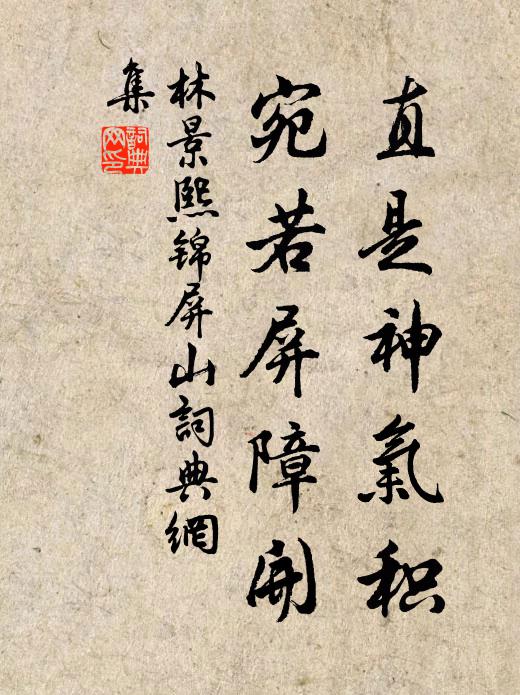 直是神氣积
宛若屏障開
林景熙錦屏山詞典網
集
詞典網印